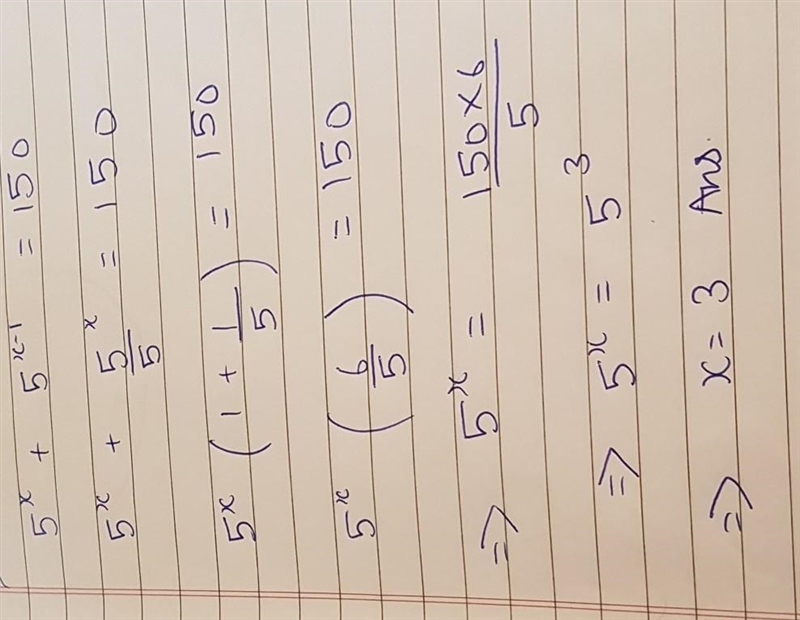 5^x + 5^(x-1) = 150
5^x + 5^x/5 = 150
5^x (1 + 1/5) = 150
5^x (6/5) = 150
=> 5^x = (150 × 6)/5
=> 5^x = 5^3
=> x = 3 Ans.